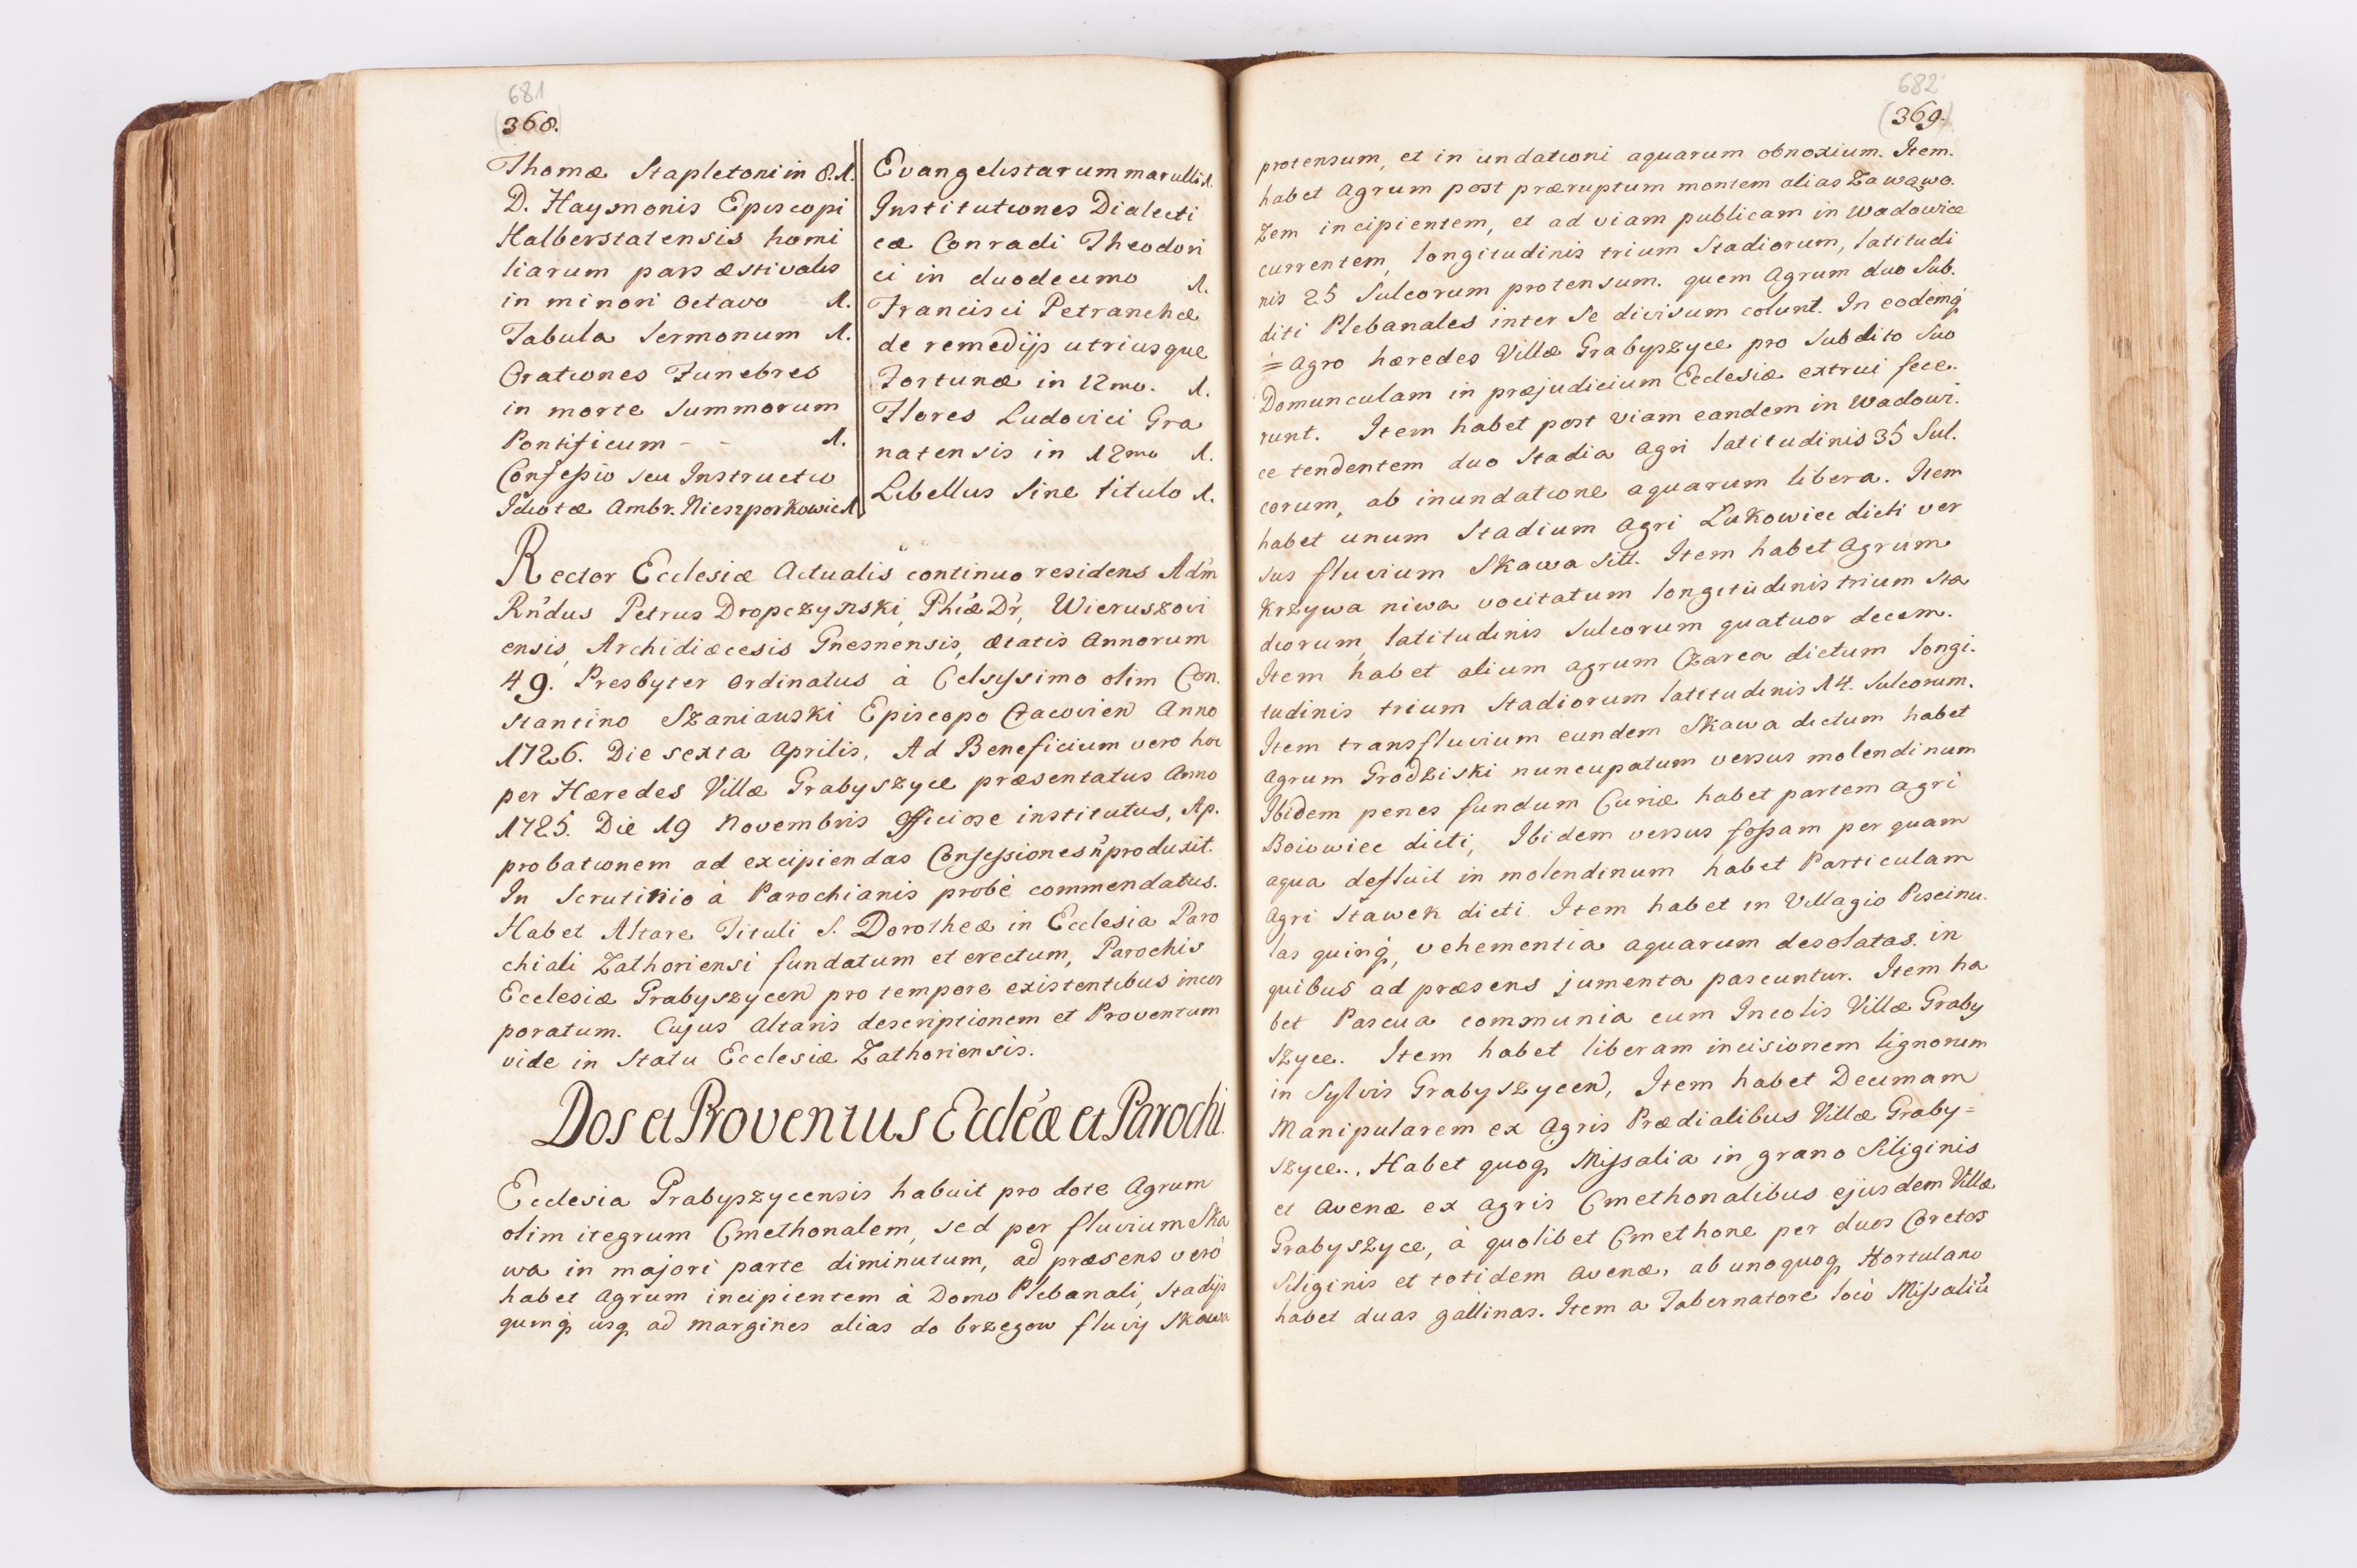 681
368.
Thomæ Stapletoni in 8. 1.
D. Haymonis Episcopi
Halberstatensis homi
liarum pars æstivalis
in minori octavo 1.
Tabula Sermonum 1.
Orationes Funebres
in morte Summorum
Pontificum - - 1.
Confessio seu Instructio
Idiotæ Ambr. Nieszporkowic 1.
Evangelistarum marulli 1.
Institutiones Dialecti
cæ Conradi Theodori
ci in duodecimo 1.
Francisci Petranchæ
de remedijs utriusque
Fortunæ in 12mo. 1.
Flores Ludovici Gra
natensis in 12mo 1.
Libellus Sine titulo 1.
Rector Ecclesiæ Actualis continuo residens Adm
Rndus Petrus Dropczynski, Phiæ Dr, Wieruszovi
ensis, Archidiæcesis Gnesnensis, ætatis Annorum
49. Presbyter ordinatus à Celsissimo olim Con.
stantino Szaniauski Episcopo Cracovien Anno
1726. Die sexta Aprilis, Ad Beneficium vero hoc
per Hæredes Villæ Grabyszyce præsentatus Anno
1725. Die 19 Novembris officiose institutus, Ap.
probationem ad excipiendas Confessiones ñ produxit.
In Scrutinio à Parochianis probè commendatus.
Habet Altare Tituli S. Dorotheæ in Ecclesia Paro
chiali Zathoriensi fundatum et erectum, Parochis
Ecclesiæ Grabyszycen pro tempore existentibus incor
poratum. Cujus Altaris descriptionem et Proventum
vide in Statu Ecclesiæ Zathoriensis.
Dos et Proventus Eccléæ et Parochi.
Ecclesia Grabyszycensis habuit pro dote Agrum
olim itegrum Cmethonalem, sed per fluvium Ska
wa in majori parte diminutum, ad præsens verò
habet Agrum incipientem à Domo Plebanali, Stadijs
quinq usq ad margines alias do brzegow fluvij Skawa
682
(369.)
protensum, et in undationi aquarum obnoxium. Item.
habet Agrum post præruptum montem alias Zawąwo.
zem incipientem, et ad viam publicam in Wadowice
currentem, longitudinis trium Stadiorum, latitudi
nis 25 Sulcorum protensum. quem Agrum duo Sub.
diti Plebanales inter se divisum colunt. In eodemq
= Agro hæredes Villæ Grabyszyce pro Subdito Suo
Domunculam in præjudicium Ecclesiæ extrui fece.
runt. Item habet post viam eandem in Wadowi.
ce tendentem duo Stadia Agri latitudinis 35 Sul.
corum, ab inundatione aquarum libera. Item
habet unum Stadium Agri Lukowiec dicti ver
sus fluvium Skawa Sitt. Item habet Agrum
Krzywa niwa vocitatum longitudinis trium Sta
diorum, latitudinis Sulcorum quatuor decem.
Item habet alium agrum Czarea dictum longi.
tudinis trium Stadiorum latitudinis 14. Sulcorum.
Item transfluvium eundem Skawa dictum habet
Agrum Grodziski nuncupatum versus molendinum
Ibidem penes fundum Curiæ habet partem agri
Boiowiec dicti, Ibidem versus fossam per quam
aqua defluit in molendinum habet Particulam
Agri Stawek dicti Item habet in Villagio Piscinu.
las quinq, vehementia aquarum desolatas. in
quibus ad præsens jumenta pascuntur. Item ha
bet Pascua communia cum Incolis Villæ Graby
szyce. Item habet liberam incisionem lignorum
in Sylvis Grabyszycen, Item habet Decimam
Manipularem ex Agris Prædialibus Villæ Graby=
szyce. Habet quoq Missalia in grano Siliginis
et avenæ ex agris Cmethonalibus ejusdem Villæ
Grabyszyce, à quolibet Cmethone per duos Coretos
Siliginis et totidem avenæ, ab unoquoq Hortulano
habet duas gallinas. Item a Tabernatore locò Missaliũ